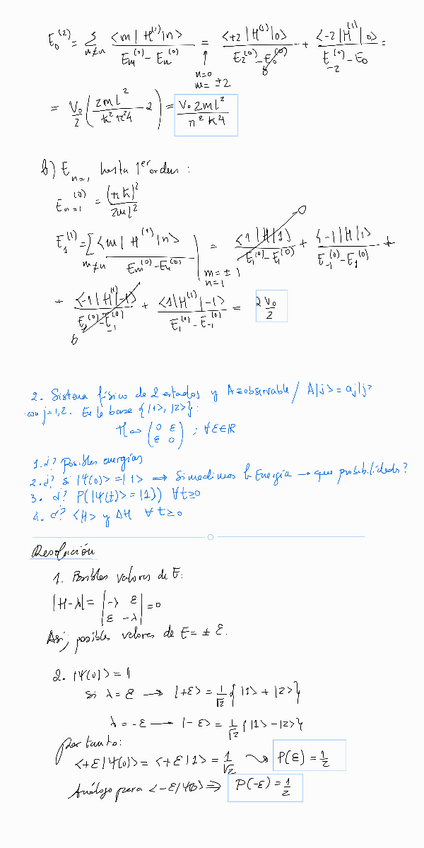 E₀⁽²⁾ = Σ_{m≠n} <m|H⁽¹⁾|n> / (Em⁽⁰⁾ - En⁽⁰⁾) = <+2|H⁽¹⁾|0> / (E2⁽⁰⁾ - E0⁽⁰⁾) + <-2|H⁽¹⁾|0> / (E-2⁽⁰⁾ - E0) =
n=0
m= ±2
= V₀/2 ( 2ml²/ħ²π²4 - 2 ) = V₀ 2ml² / π² ħ 4
b) E n=1 hasta 1er orden:
E n=1 ⁽⁰⁾ = (πħ)² / 2ml²
E₁⁽¹⁾ = [<m|H⁽¹⁾|n> / (Em⁽⁰⁾ - En⁽⁰⁾) | = <1|H|1> / (E1⁽⁰⁾ - E1⁽⁰⁾) → 0 + <-1|H|1> / (E-1⁽⁰⁾ - E1⁽⁰⁾) +
m≠n
m = ± 1
n = 1
+ <-1|H⁽¹⁾|-1> / (E⁽⁰⁾ - E-1⁽⁰⁾) + <1|H⁽¹⁾|-1> / (E1⁽⁰⁾ - E-1⁽⁰⁾) = 2 V₀/2
2. Sistema físico de 2 estados y A≡observable / A|j> = aj|j>
con j=1,2. En la base {|1>, |2>}:
H ⇔ (0 ε
ε 0) ; ∀ε∈ℝ
1. ¿? Posibles energías
2. ¿? Si |Ψ(0)> = |1> ⟹ Si medimos la Energía → que probabilidades?
3. ¿? P(|Ψ(t)> = |1>) ∀t≥0
4. ¿? <H> y ΔH ∀t≥0
Resolución
1. Posibles valores de E:
|H-λ| = |-λ ε
ε -λ| = 0
Así, posibles valores de E = ± ε.
2. |Ψ(0)> = 1
si λ = ε → |+ε> = 1/√2 {|1> + |2>}
λ = -ε → |-ε> = 1/√2 {|1> - |2>}
por tanto:
<+ε|Ψ(0)> = <+ε|1> = 1/√2 ⤳ P(ε) = 1/2
Análogo para <-ε|Ψ(0)> ⟹ P(-ε) = 1/2